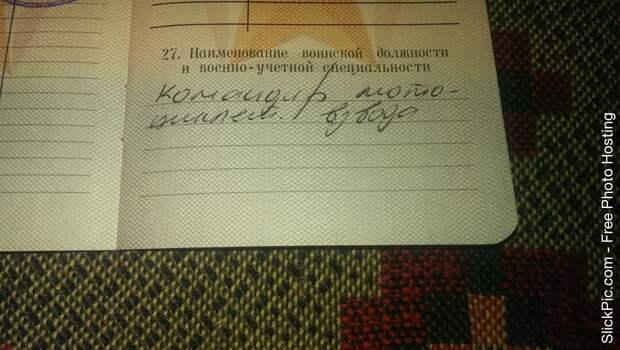 27. Наименование воинской должности
и военно-учетной специальности
Командир мото-
циклет. взвода
SlickPic.com - Free Photo Hosting